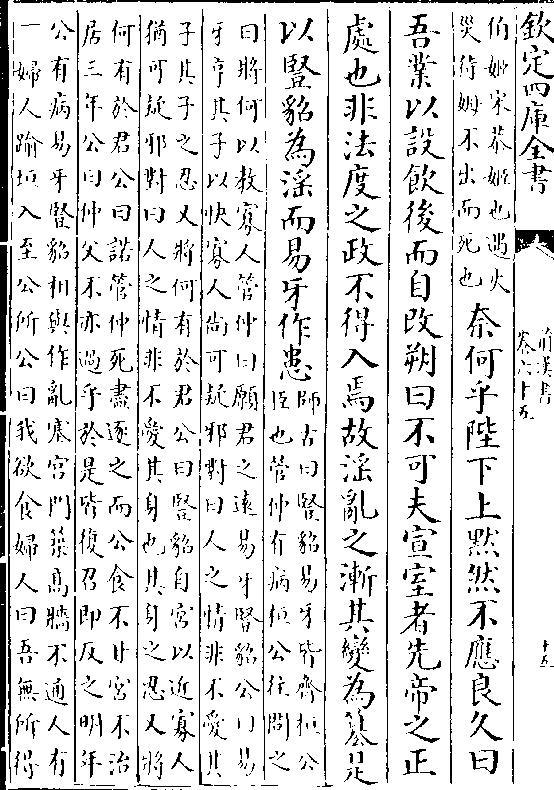 欽定四庫全書
前漢書
卷六十五
十五
伯姬宋恭姬也遇火
災待姆不出而死也
奈何乎陛下上黙然不應良久曰
吾業以設飲後而自改朔曰不可夫宣室者先帝之正
處也非法度之政不得入焉故淫亂之漸其變為簒是
以豎貂為淫而易牙作患
師古曰豎貂易牙皆齊桓公
臣也管仲有病桓公往問之
曰將何以教寡人管仲曰願君之逺易牙豎貂公曰易
牙亨其子以快寡人尚可疑邪對曰人之情非不愛其
子其子之忍又將何有於君公曰豎貂自宮以近寡人
猶可疑邪對曰人之情非不愛其身也其身之忍又將
何有於君公曰諾管仲死盡逐之而公食不甘宮不治
居三年公曰仲父不亦過乎於是皆復召即反之明年
公有病易牙豎貂相與作亂塞宮門築髙牆不通人有
一婦人踰垣入至公所公曰我欲食婦人曰吾無所得